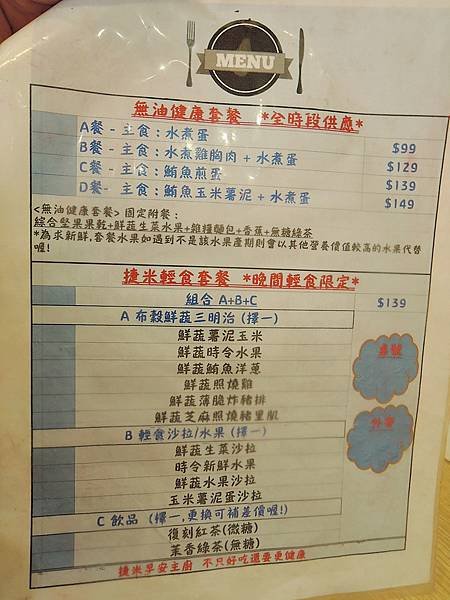 MENU
無油健康套餐 *全時段供應*
A餐 - 主食：水煮蛋 $99
B餐 - 主食：水煮雞胸肉 + 水煮蛋 $129
C餐 - 主食：鮪魚煎蛋 $139
D餐- 主食：鮪魚玉米薯泥 + 水煮蛋 $149
<無油健康套餐> 固定附餐：
綜合堅果果乾+鮮蔬生菜水果+雜糧麵包+香蕉+無糖綠茶
*為求新鮮,套餐水果如遇到不是該水果產期則會以其他營養價值較高的水果代替
喔!
捷米輕食套餐 *晚間輕食限定*
組合 A+B+C $139
A 布穀鮮蔬三明治 (擇一)
鮮蔬薯泥玉米
鮮蔬時令水果
鮮蔬鮪魚洋蔥
鮮蔬照燒雞
鮮蔬薄脆炸豬排
鮮蔬芝麻照燒豬里肌
B 輕食沙拉/水果 (擇一)
鮮蔬生菜沙拉
時令新鮮水果
鮮蔬水果沙拉
玉米薯泥蛋沙拉
C 飲品 (擇一,更換可補差價喔!)
復刻紅茶(微糖)
茉香綠茶(無糖)
捷米早安主廚 不只好吃還要更健康
桌號
外帶